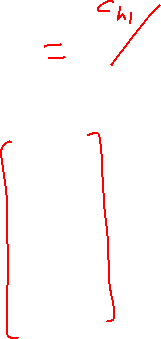 = c_h1 /
[ ]